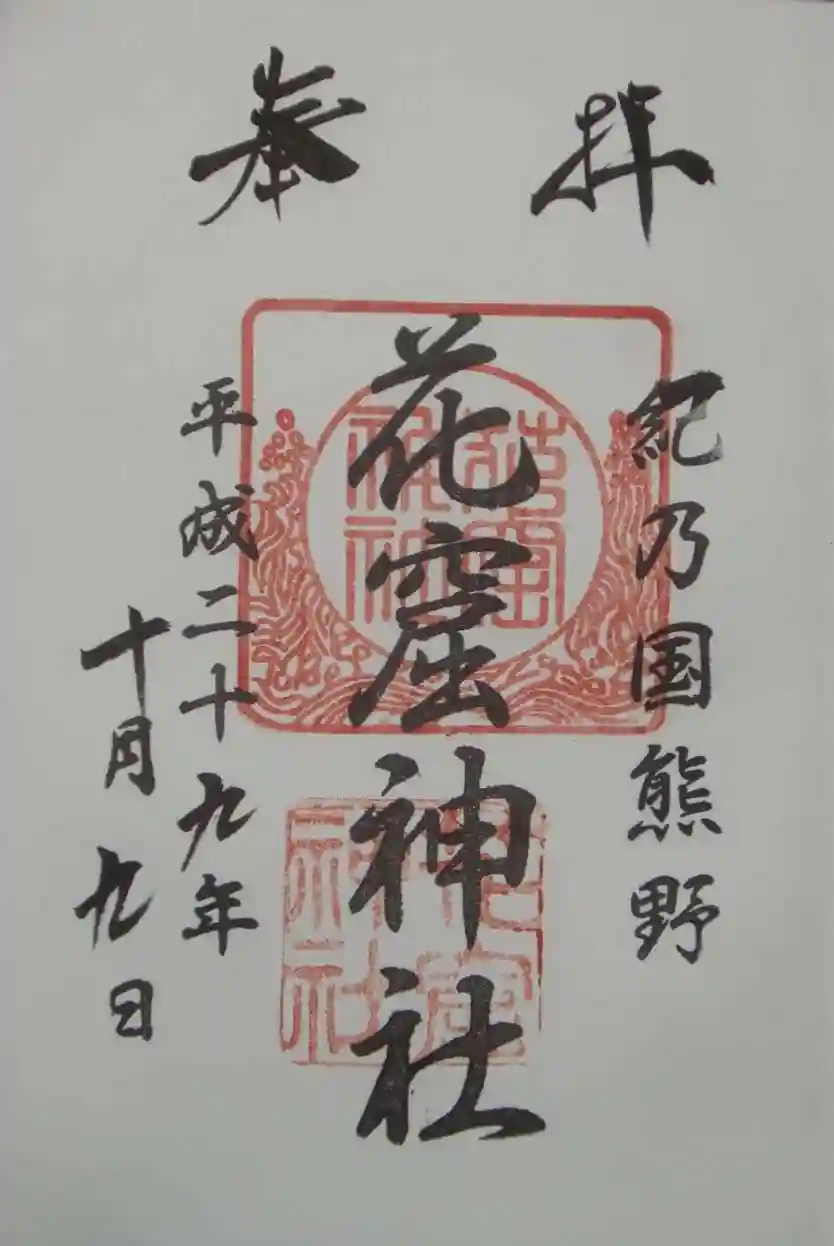 奉拝
紀乃国熊野
花窟神社
平成二十九年
十月九日
花窟神社
花窟神社